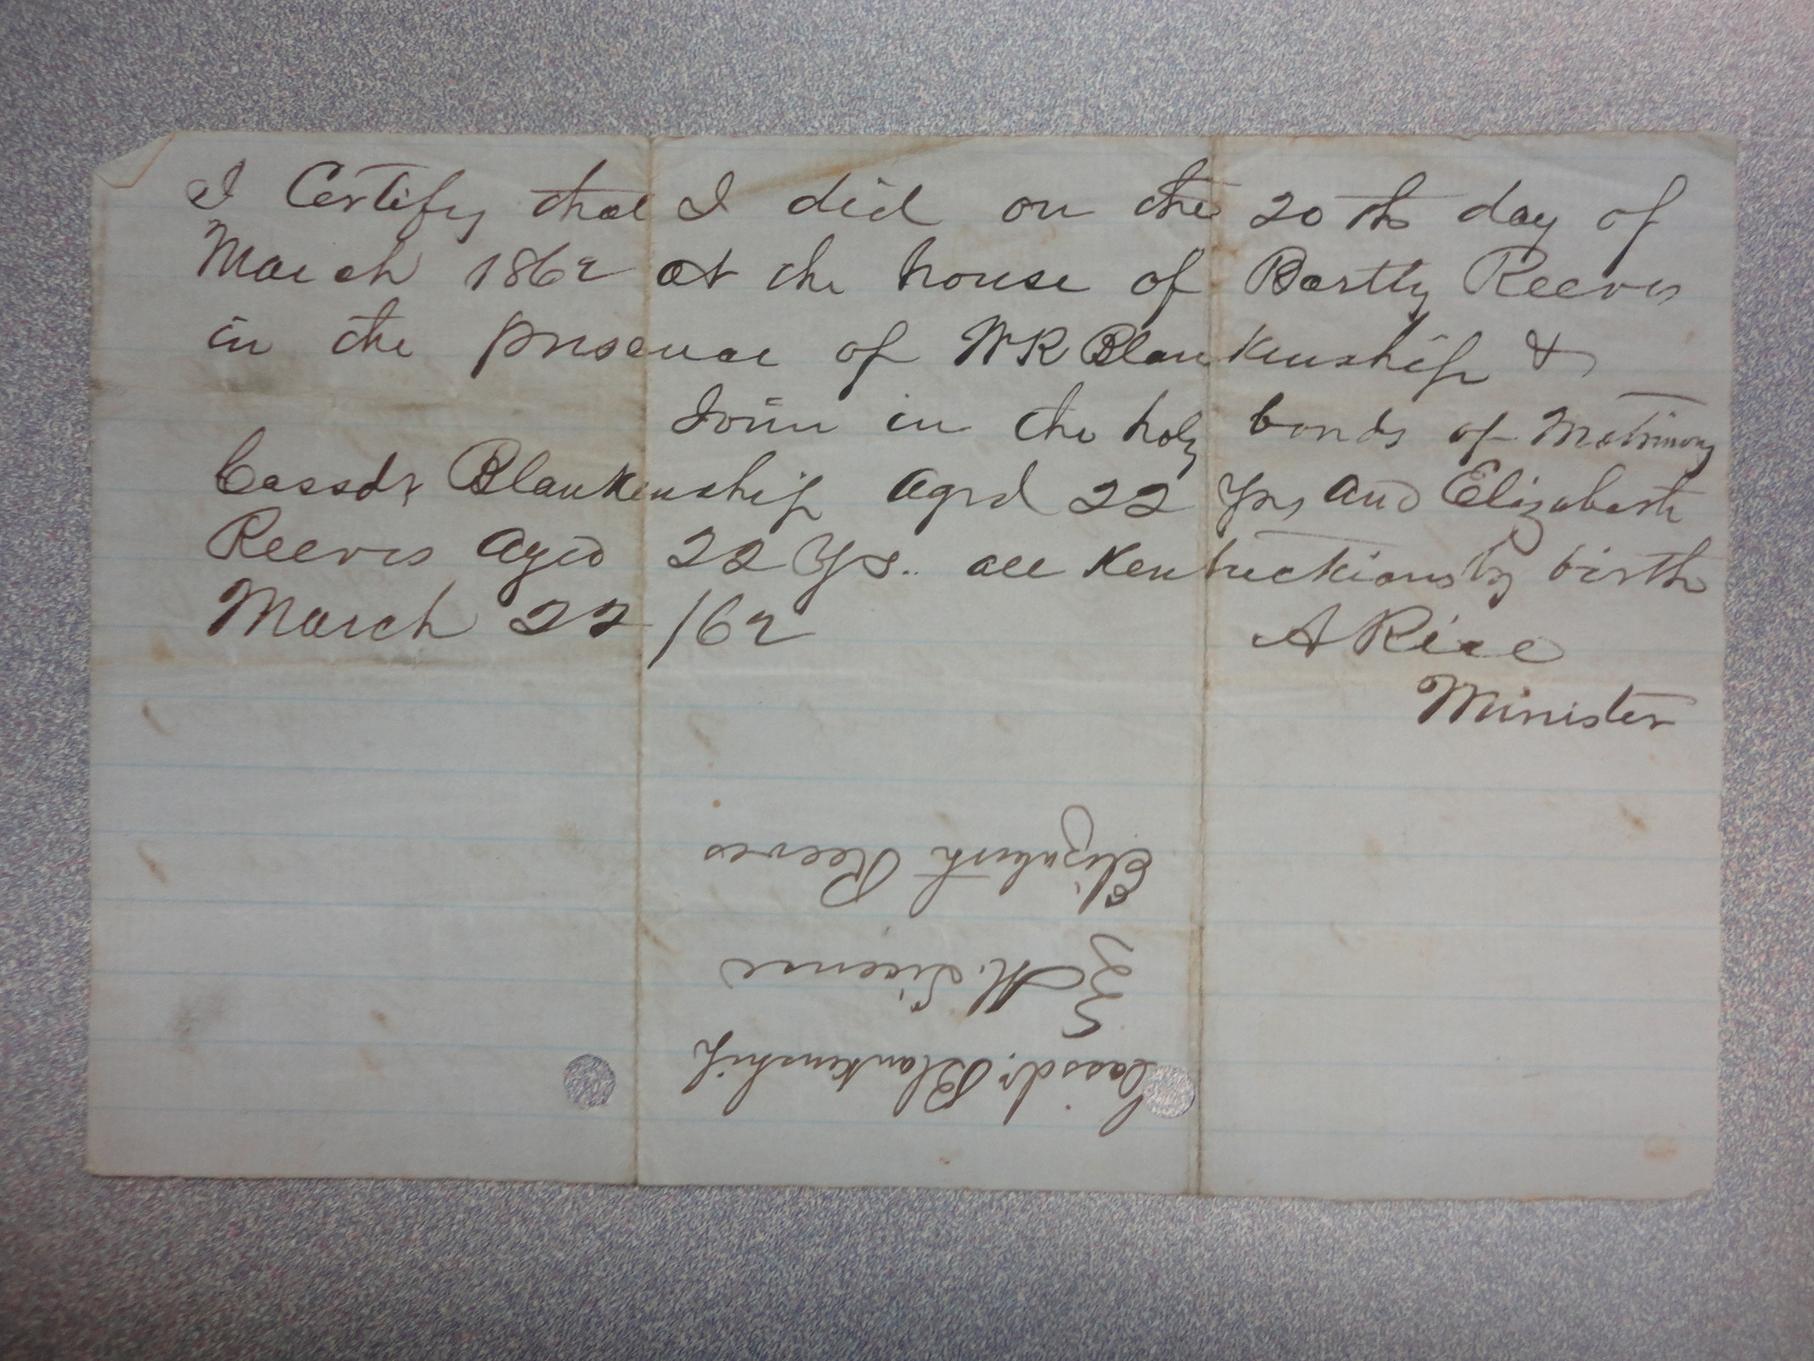 I Certify that I did on the 20th day of
March 1862 at the house of Bartly Reeves
in the presence of WR Blankenship &
Join in the holy bonds of Matrimony
Cassdr Blankenship aged 22 yrs and Elizabeth
Reeves aged 22 Ys.. all Kentuckians by birth
March 22/62 A Rice
Minister
Cassdr. Blankenship
M. License
Elizabeth Reeves